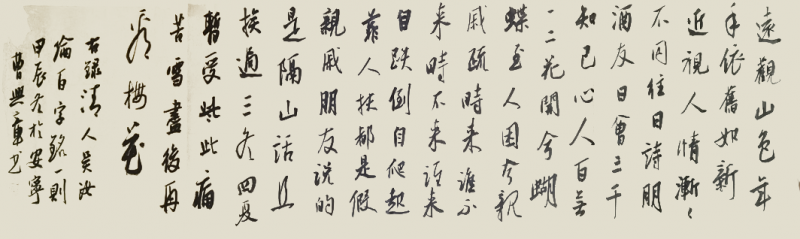 遠觀山色年
年依舊如新
近視人情漸〻
不同往日詩朋
酒友日會三千
知己心人百無
一二花開兮蝴
蝶至人困兮親
戚疏時來誰不
來時不來誰來
自跌倒自爬起
靠人扶都是假
親戚朋友說的
是隔山話且
挨過三冬四夏
暫受此此痛
苦雪盡後再
看梅花
右錄清人吳汝
綸百字銘一則
甲辰冬於安寧
曹興軍書